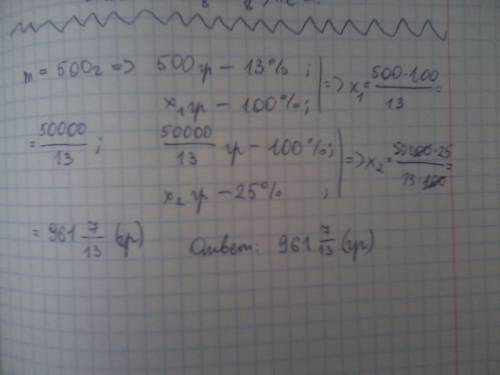 m = 500г => 500 гр – 13% ; | => x₁ = 500·100/13 =
x₁ гр – 100%;
= 50000/13 ; 50000/13 гр – 100%; | => x₂ = 50000·25/13·100 =
x₂ гр – 25% ;
= 961 7/13 (гр) Ответ: 961 7/13 (гр)